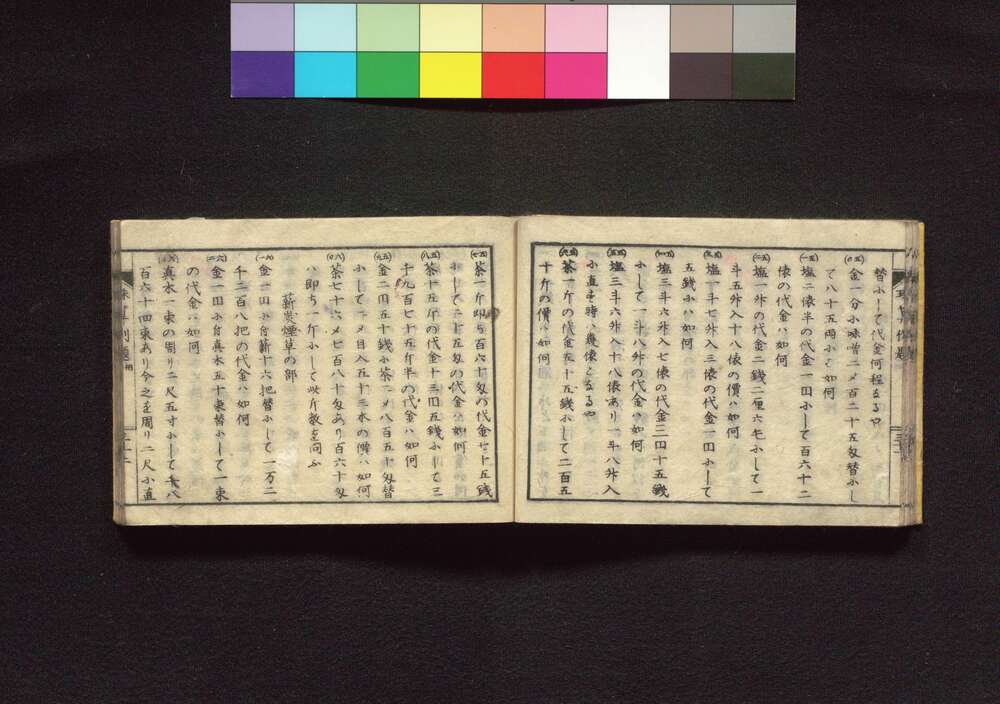 替小して代金何程なるや
(五十)金一分小味噌二メ百二十五匁替小し
て八十五両小て如何
(五一)塩二俵半の代金一囙小して百六十二
俵の代金ハ如何
(五二)塩一升の代金二銭二厘六毛小して一
斗五升入十八俵の價ハ如何
(五三)塩一斗七升入三俵の代金一囙小して
五銭小ハ如何
(五四)塩三斗六升入七俵の代金三囙十五銭
小して一斗八升の代金ハ如何
(五五)塩三斗六升入十八俵あり一斗八升入
小直す時ハ幾俵となるや
(五六)茶一斤の代金五十五銭小して二百五
十斤の價ハ如何
(五七)茶一斤即ち百六十匁の代金七十五銭
小して二十五匁の代金ハ如何
(五八)茶十五斤の代金十三囙五銭小して三
千九百七十五斤半の代金ハ如何
(五九)金二囙五十銭小茶二メ八百五十匁替
小して一メ目入五十三本の價ハ如何
(六十)茶七十六メ七百八十匁あり百六十匁
ハ即ち一斤小して此斤数を問ふ
薪炭煙草の部
(六一)金一囙小付薪十六把替小して一万二
千二百八把の代金ハ如何
(六二)金一囙小付真木五十束替小して一束
の代金ハ如何
(六三)真木一束の周り二尺五寸小して八
百六十四束あり今之を周り二尺小直